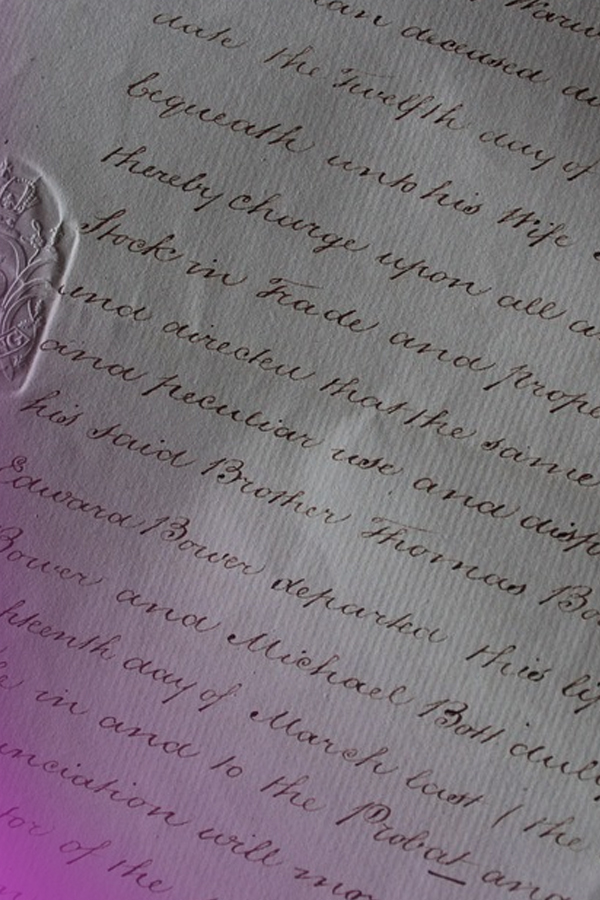 deceased
date the Twelfth day of
bequeath unto his Wife
thereby charge upon all
Stock in Trade and prope
and directed that the same
and peculiar use and disp
his said Brother Thomas Bo
Edward Bower departed this lif
Bower and Michael Bott duly
hteenth day of March last (the
in and to the Probat and
nciation will
of the